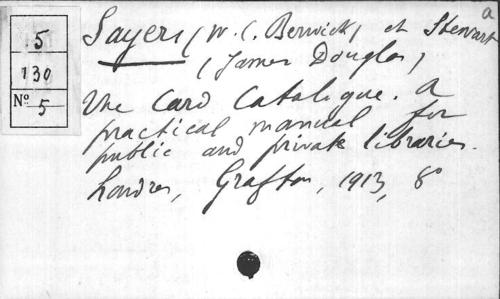 a
5
130
Nº 5
Sayers (W. C. Berwick) et Stewart
(James Douglas)
The Card Catalogue. A
practical manual for
public and private libraries.
Londres, Grafton, 1913, 8º